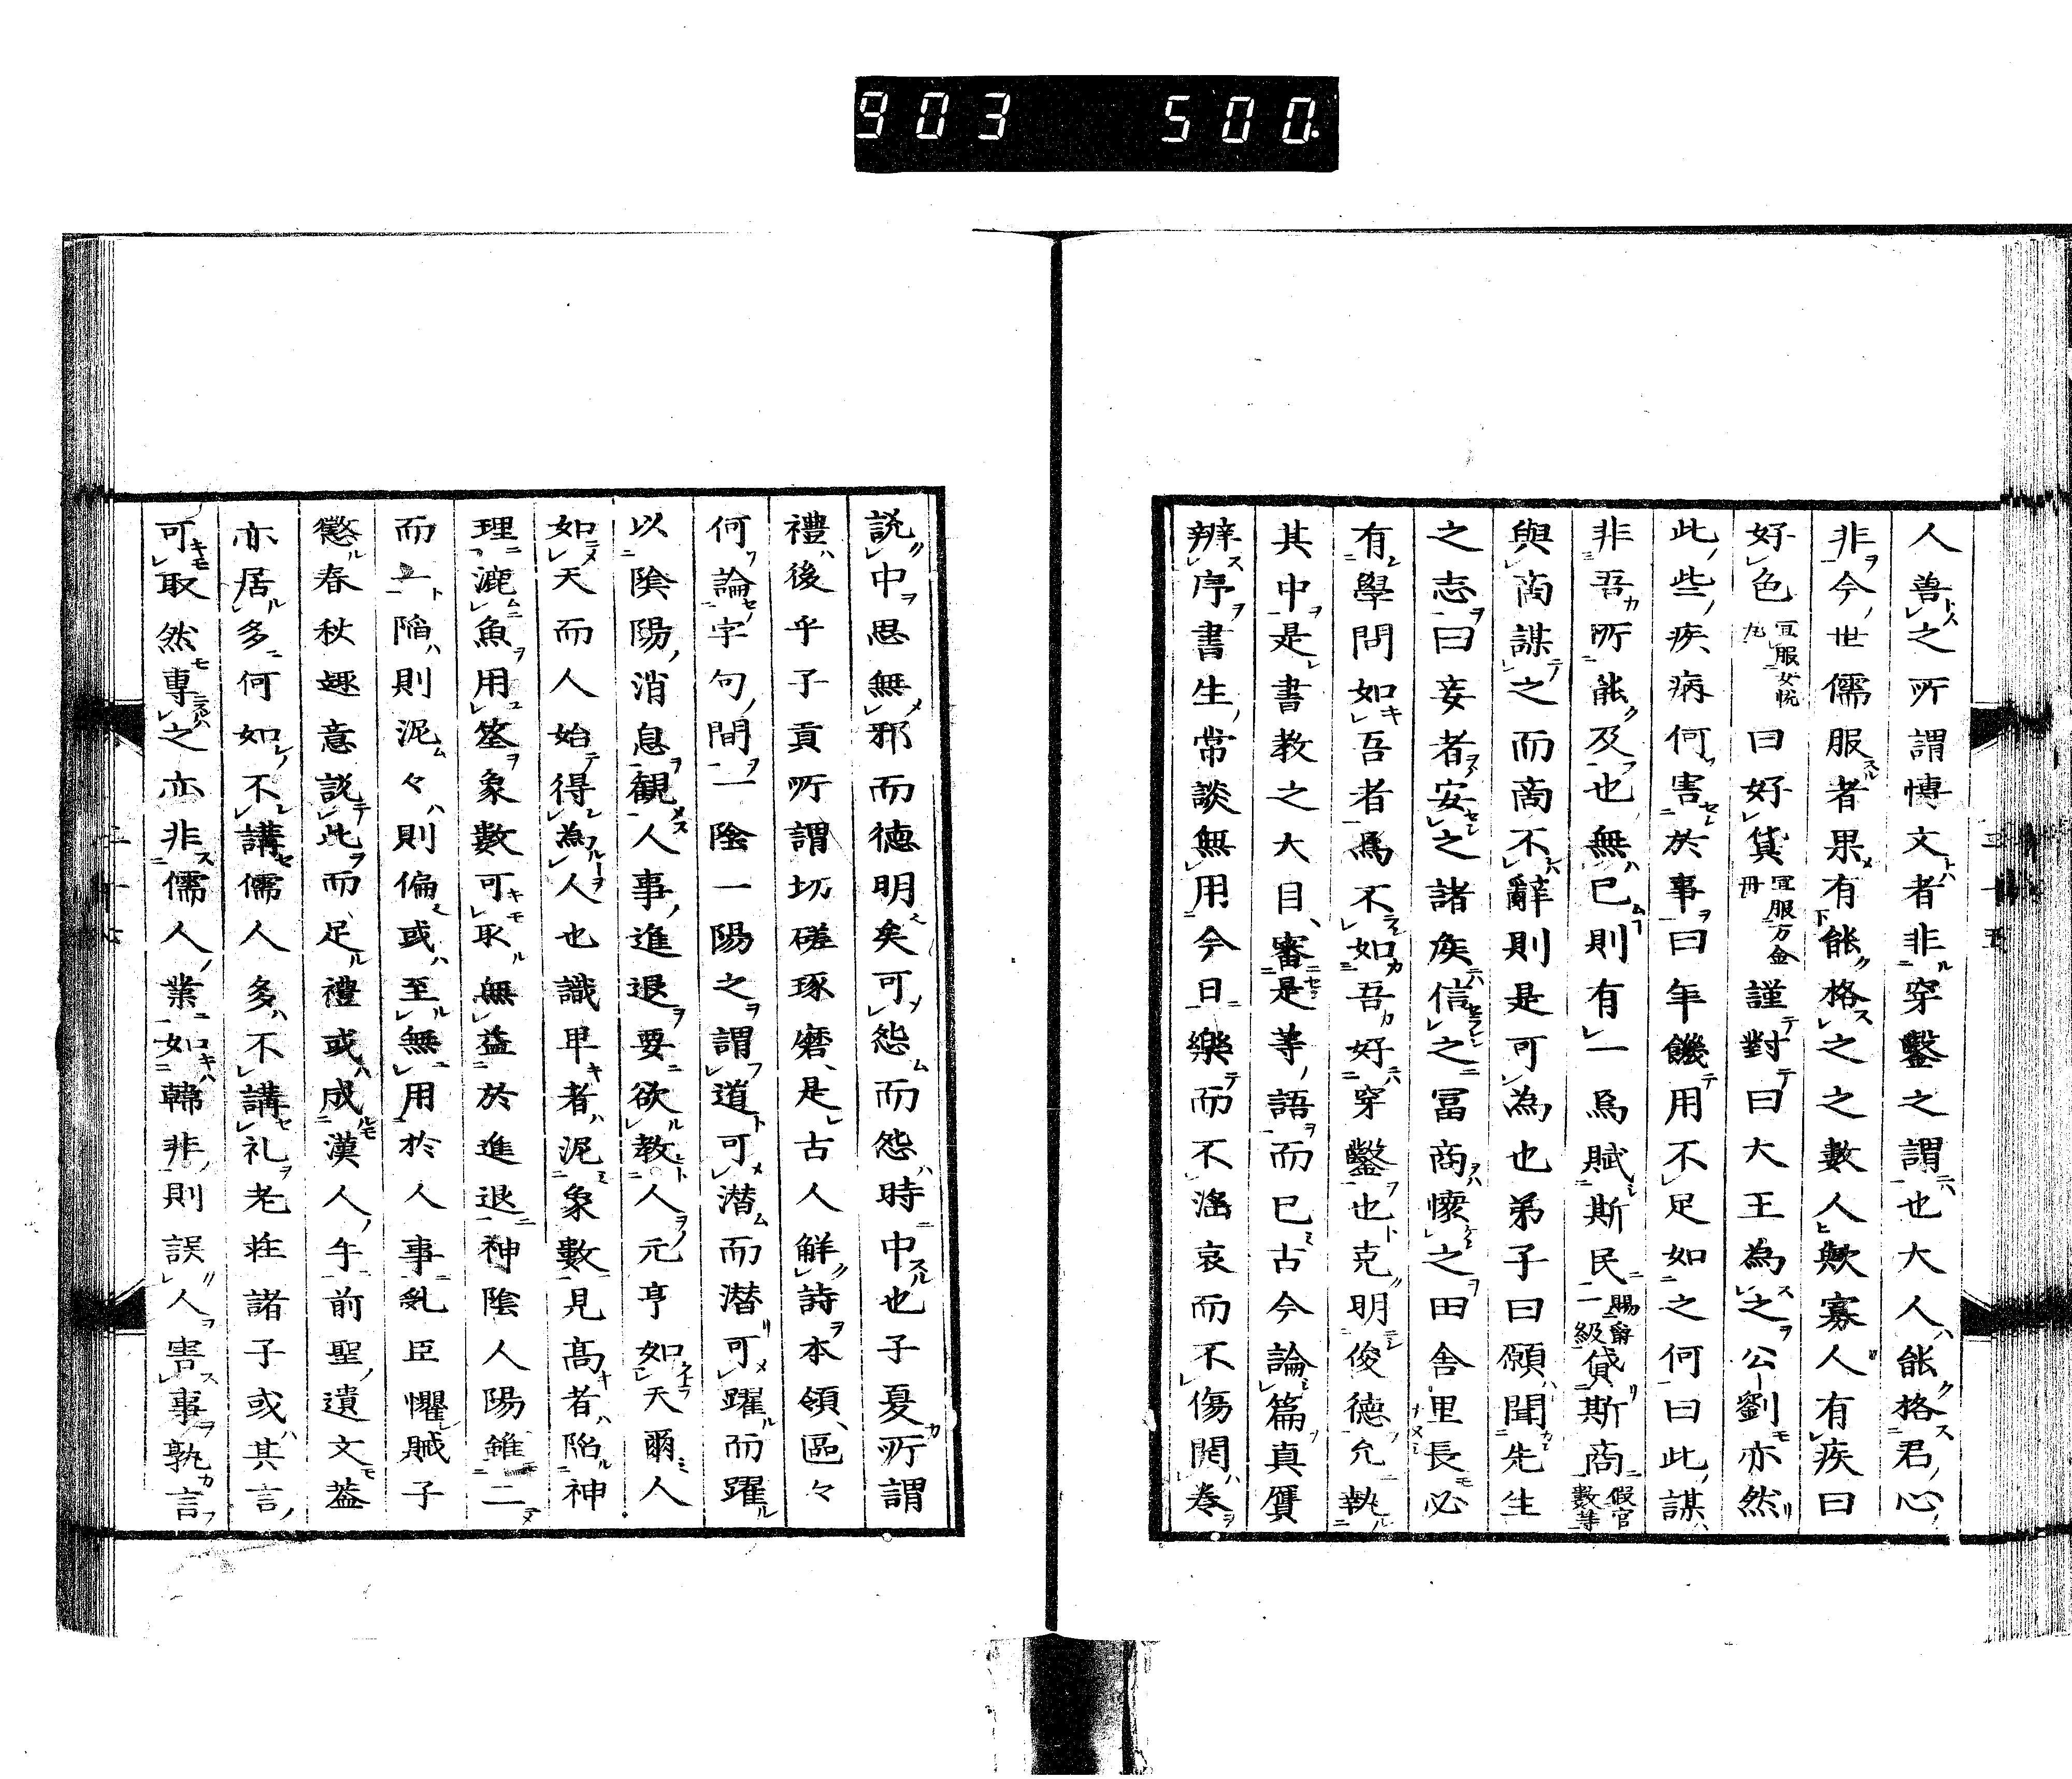 903 500.
人善之所謂博文者非穿鑿之謂也大人能格君心
非今世儒服者果有能格之之數人歟寡人有疾曰
好色宜服女悦丸曰好貨宜服万金丹謹對曰大王為之公劉亦然
此些疾病何害於事曰年饑用不足如之何曰此謀
非吾所能及也無已則有一焉賦斯民一賜爵級貸斯商假官數等
與商謀之而商不辭則是可為也弟子曰願聞先生
之志曰妾者安之諸矦信之冨商懷之田舎里長必
有學問如吾者焉不如吾好穿鑿也克明俊徳允執
其中是書教之大目審是等語而已古今論篇真贋
辨序書生常談無用今日樂而不滛哀而不傷関巻
説中思無邪而徳明矣可怨而怨時中也子夏所謂
禮後乎子貢所謂切磋琢磨是古人鮮詩本領區々
何論字句間一陰一陽之謂道可潜而潜可躍而躍
以陰陽消息観人事進退要欲教人元亨如天爾人
如天而人始得為人也識卑者泥象數見髙者陥神
理漉魚用筌象數可取無益於進退神陰人陽錐二
而一陥則泥々則偏或至無用於人事乱臣懼賊子
懲春秋趣意説此而足禮或成漢人手前聖遺文葢
亦居多何如不講儒人多不講礼老荘諸子或其言
可取然專之亦非儒人業如韓非則誤人害事孰言